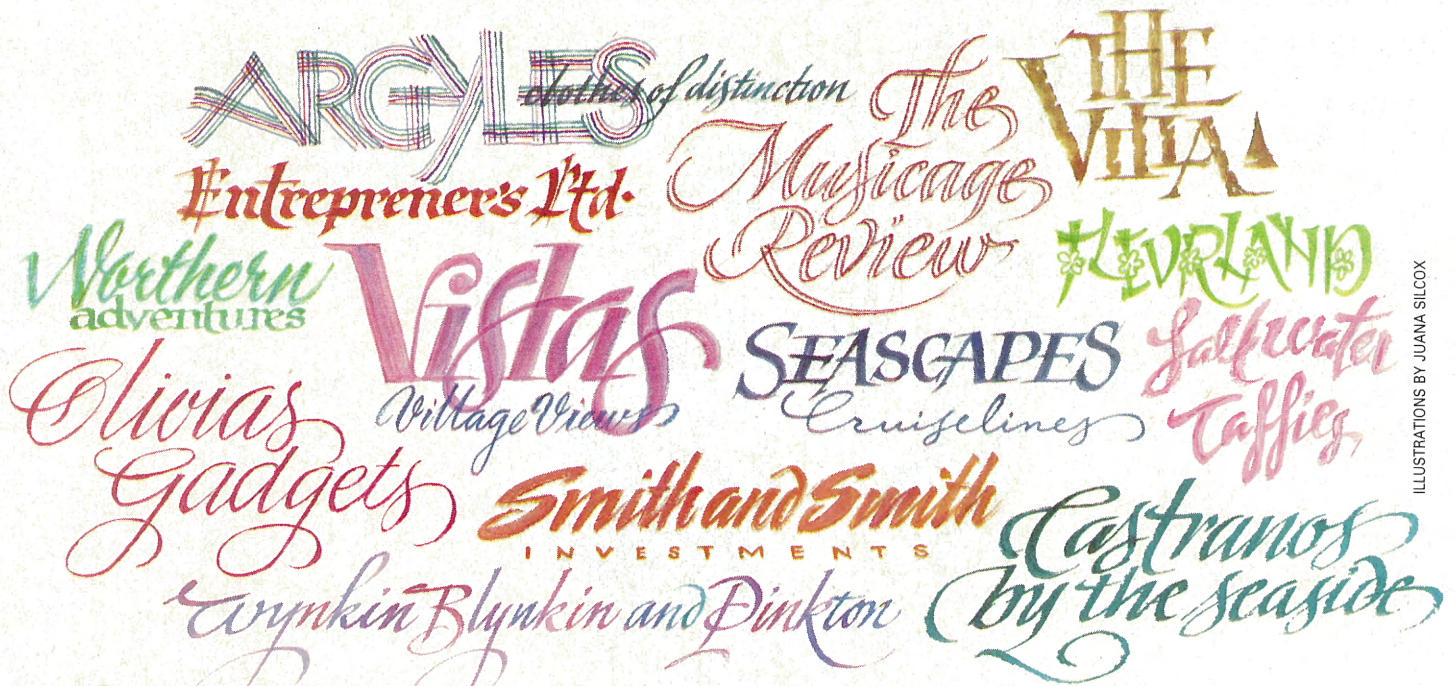 ARGYLES
clothes of distinction
The
Musicage
Review
THE
VILLA
Entreprener's Ltd.
Northern
adventures
Vistas
Village Views
FLEURLAND
SEASCAPES
Cruiselines
Saltwater
Taffies
Olivias
Gadgets
Smith and Smith
INVESTMENTS
Castranos
by the seaside
Wynkin Blynkin and Dinkton
ILLUSTRATIONS BY JUANA SILCOX